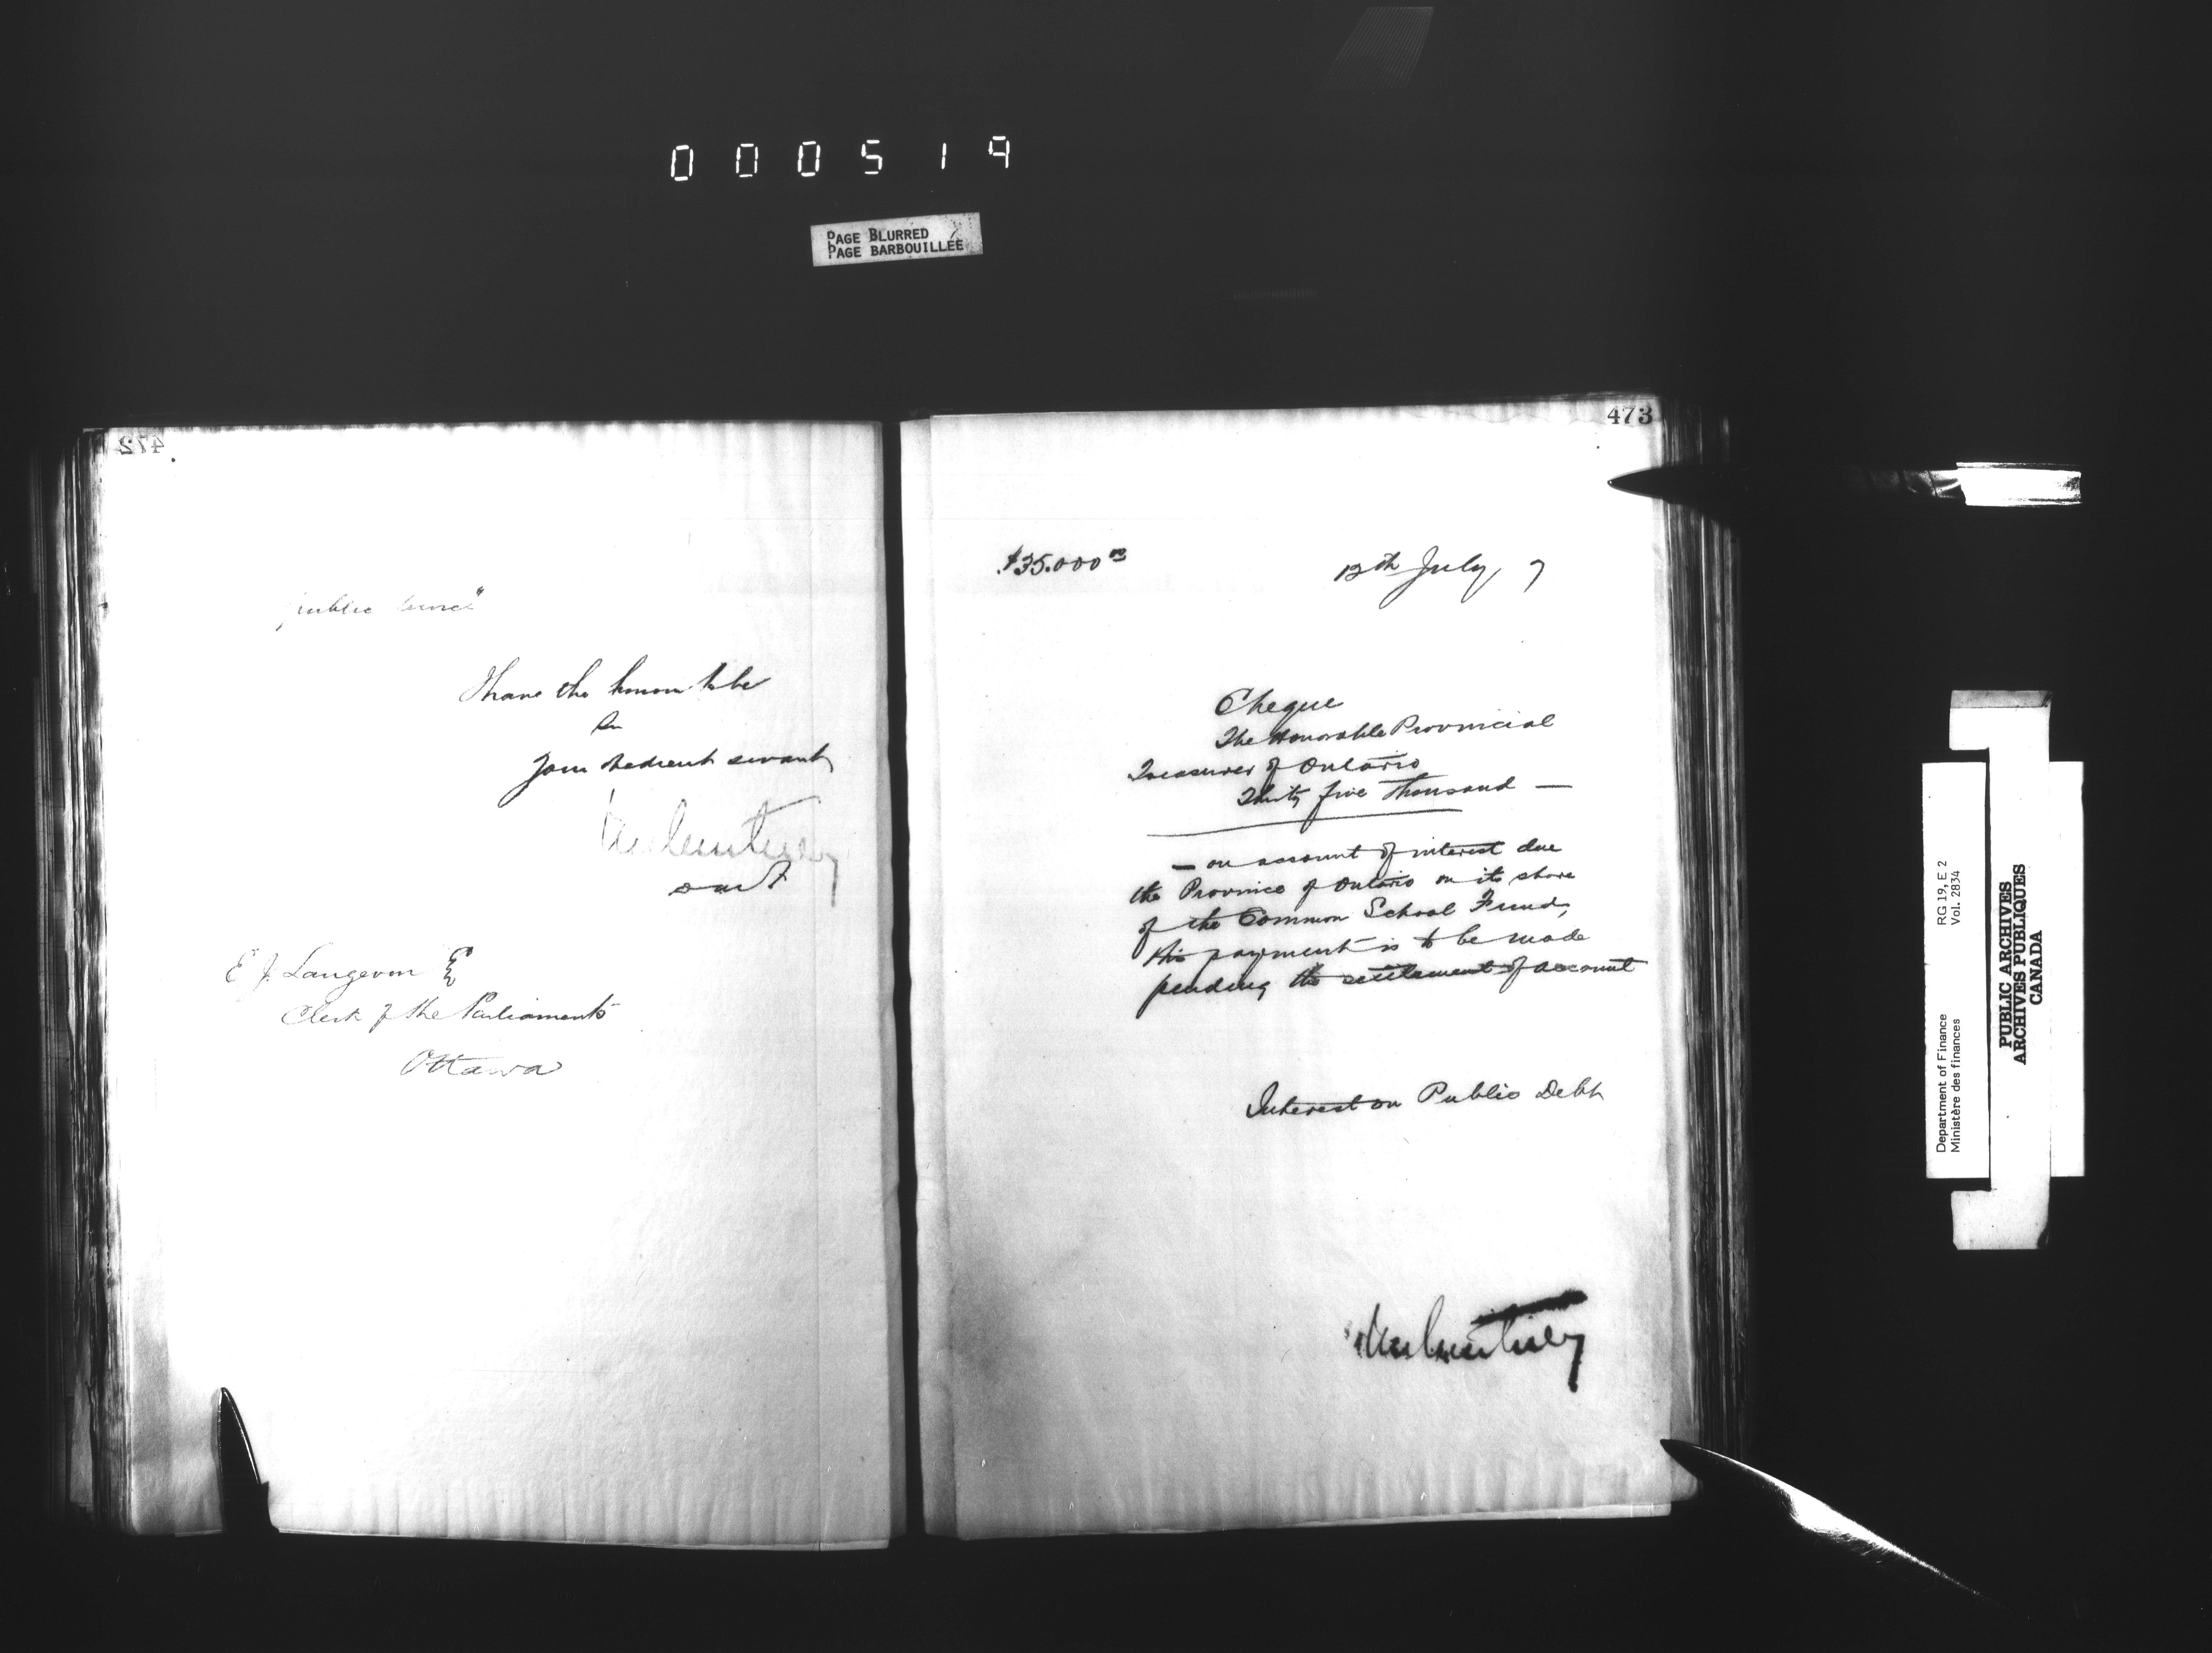 000519
PAGE BLURRED
PAGE BARBOUILLÉE
472
public
I have the honour to be
Sir
Your obedient servant
E J. Langevin Esq
Clerk of the Parliaments
Ottawa
473
$35.000 00
12th July, 7
Cheque
The Honorable Provincial
Treasurer of Ontario
Thirty five Thousand —
— on account of interest due
the Province of Ontario on its share
of the Common School Fund,
this payment is to be made
pending the settlement of account
Interest on Public Debt
Department of Finance
Ministère des finances
RG 19, E 2
Vol. 2834
PUBLIC ARCHIVES
ARCHIVES PUBLIQUES
CANADA